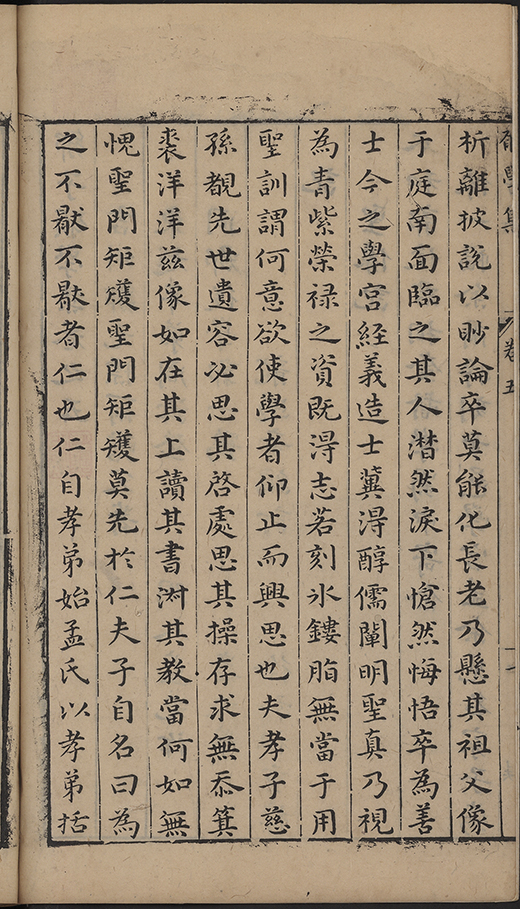 析離披說以眇論卒莫能化長老乃懸其祖父像
于庭南面臨之其人潸然淚下愴然悔悟卒為善
士今之學宮經義造士冀淂醇儒闡明聖真乃視
為青紫榮祿之資既淂志若刻氷鏤脂無當于用
聖訓謂何意欲使學者仰止而興思也夫孝子慈
孫覩先世遺容必思其啓處思其操存求無忝箕
裘洋洋兹像如在其上讀其書淑其教當何如無
愧聖門矩矱聖門矩矱莫先於仁夫子自名曰為
之不猒不猒者仁也仁自孝弟始孟氏以孝弟括
學集
卷五